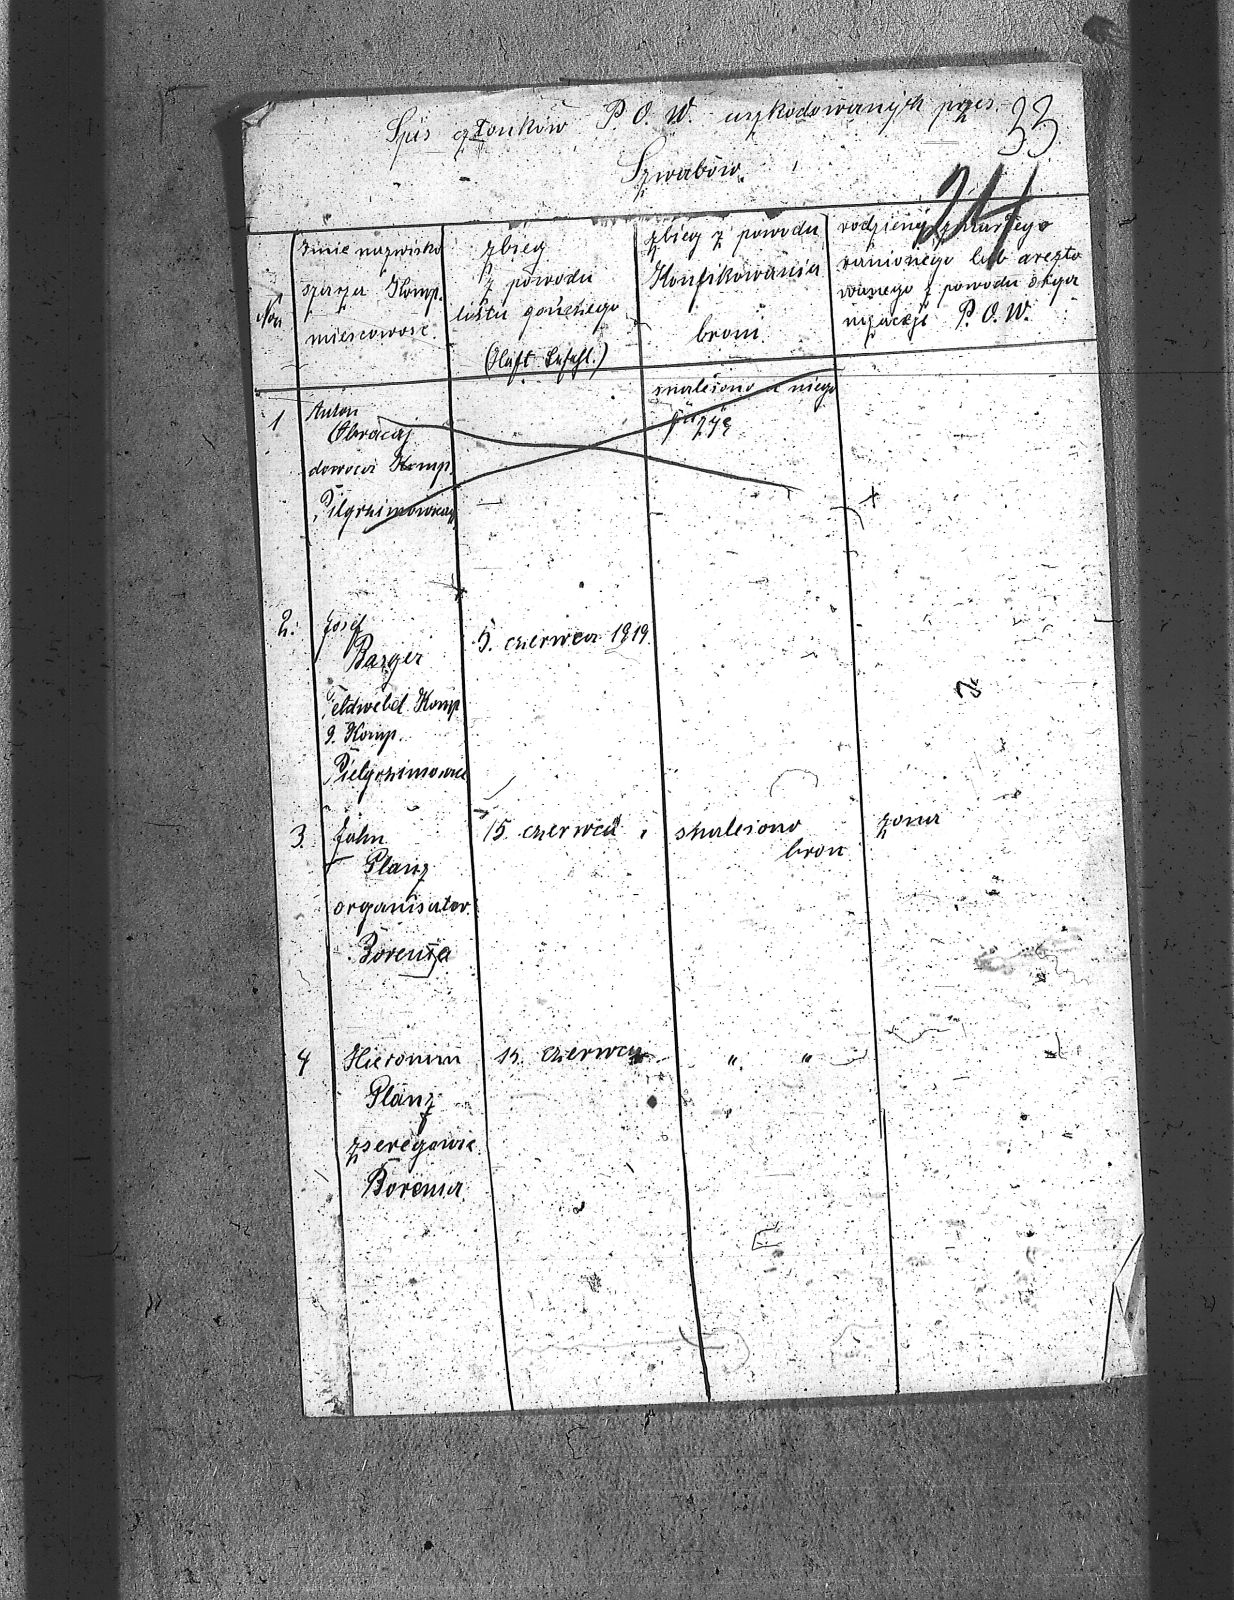 Spis członków P. O. W. uszkodowanych przes
33
Szwabów.
24
Nor
Imie nazwisko
szarza Komp.
miescowość.
zbieg
z powodu
listu gończego
(Haft Befehl.)
zbieg z powodu
Konfikowania
broni
rodzieny zmarłego
ranionego lub areszto
wanego z powodu orga
nizacji P. O. W.
1
Anton
Obracaj
dowoca Komp.
Pilgrzimowice
snalesono u niego
2.
Josef
Barger
Feldwebel Komp
9. Komp.
Pielgrzimowice
5. czerwca 1919.
3.
John
Planz
organisator.
Borenia
15 czerwca
snalesono
bron
zona
4
Hieronim
Planz
szeregowie.
Borenia.
15. czerwca
" "